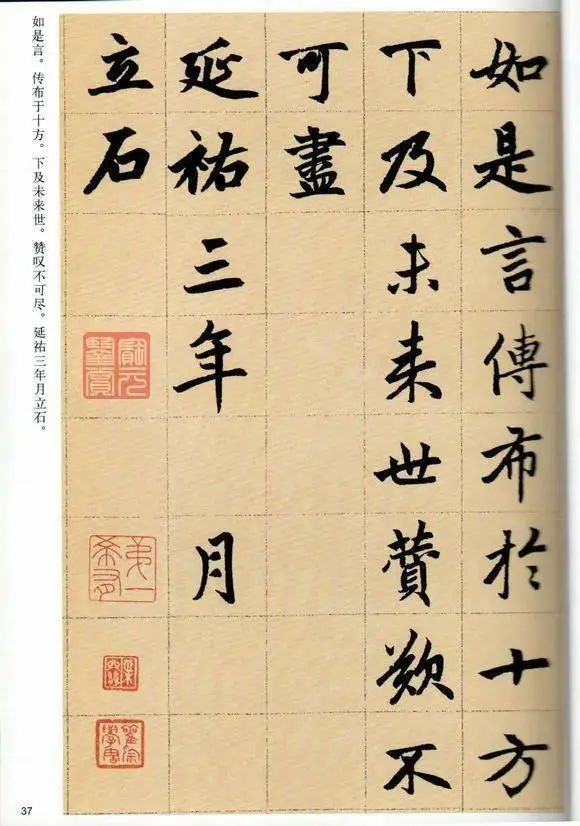 如是言傳布於十方
下及未来世賛歎不
可盡
延祐三年 月
立石
如是言。传布于十方。下及未来世。赞叹不可尽。延祐三年月立石。
37